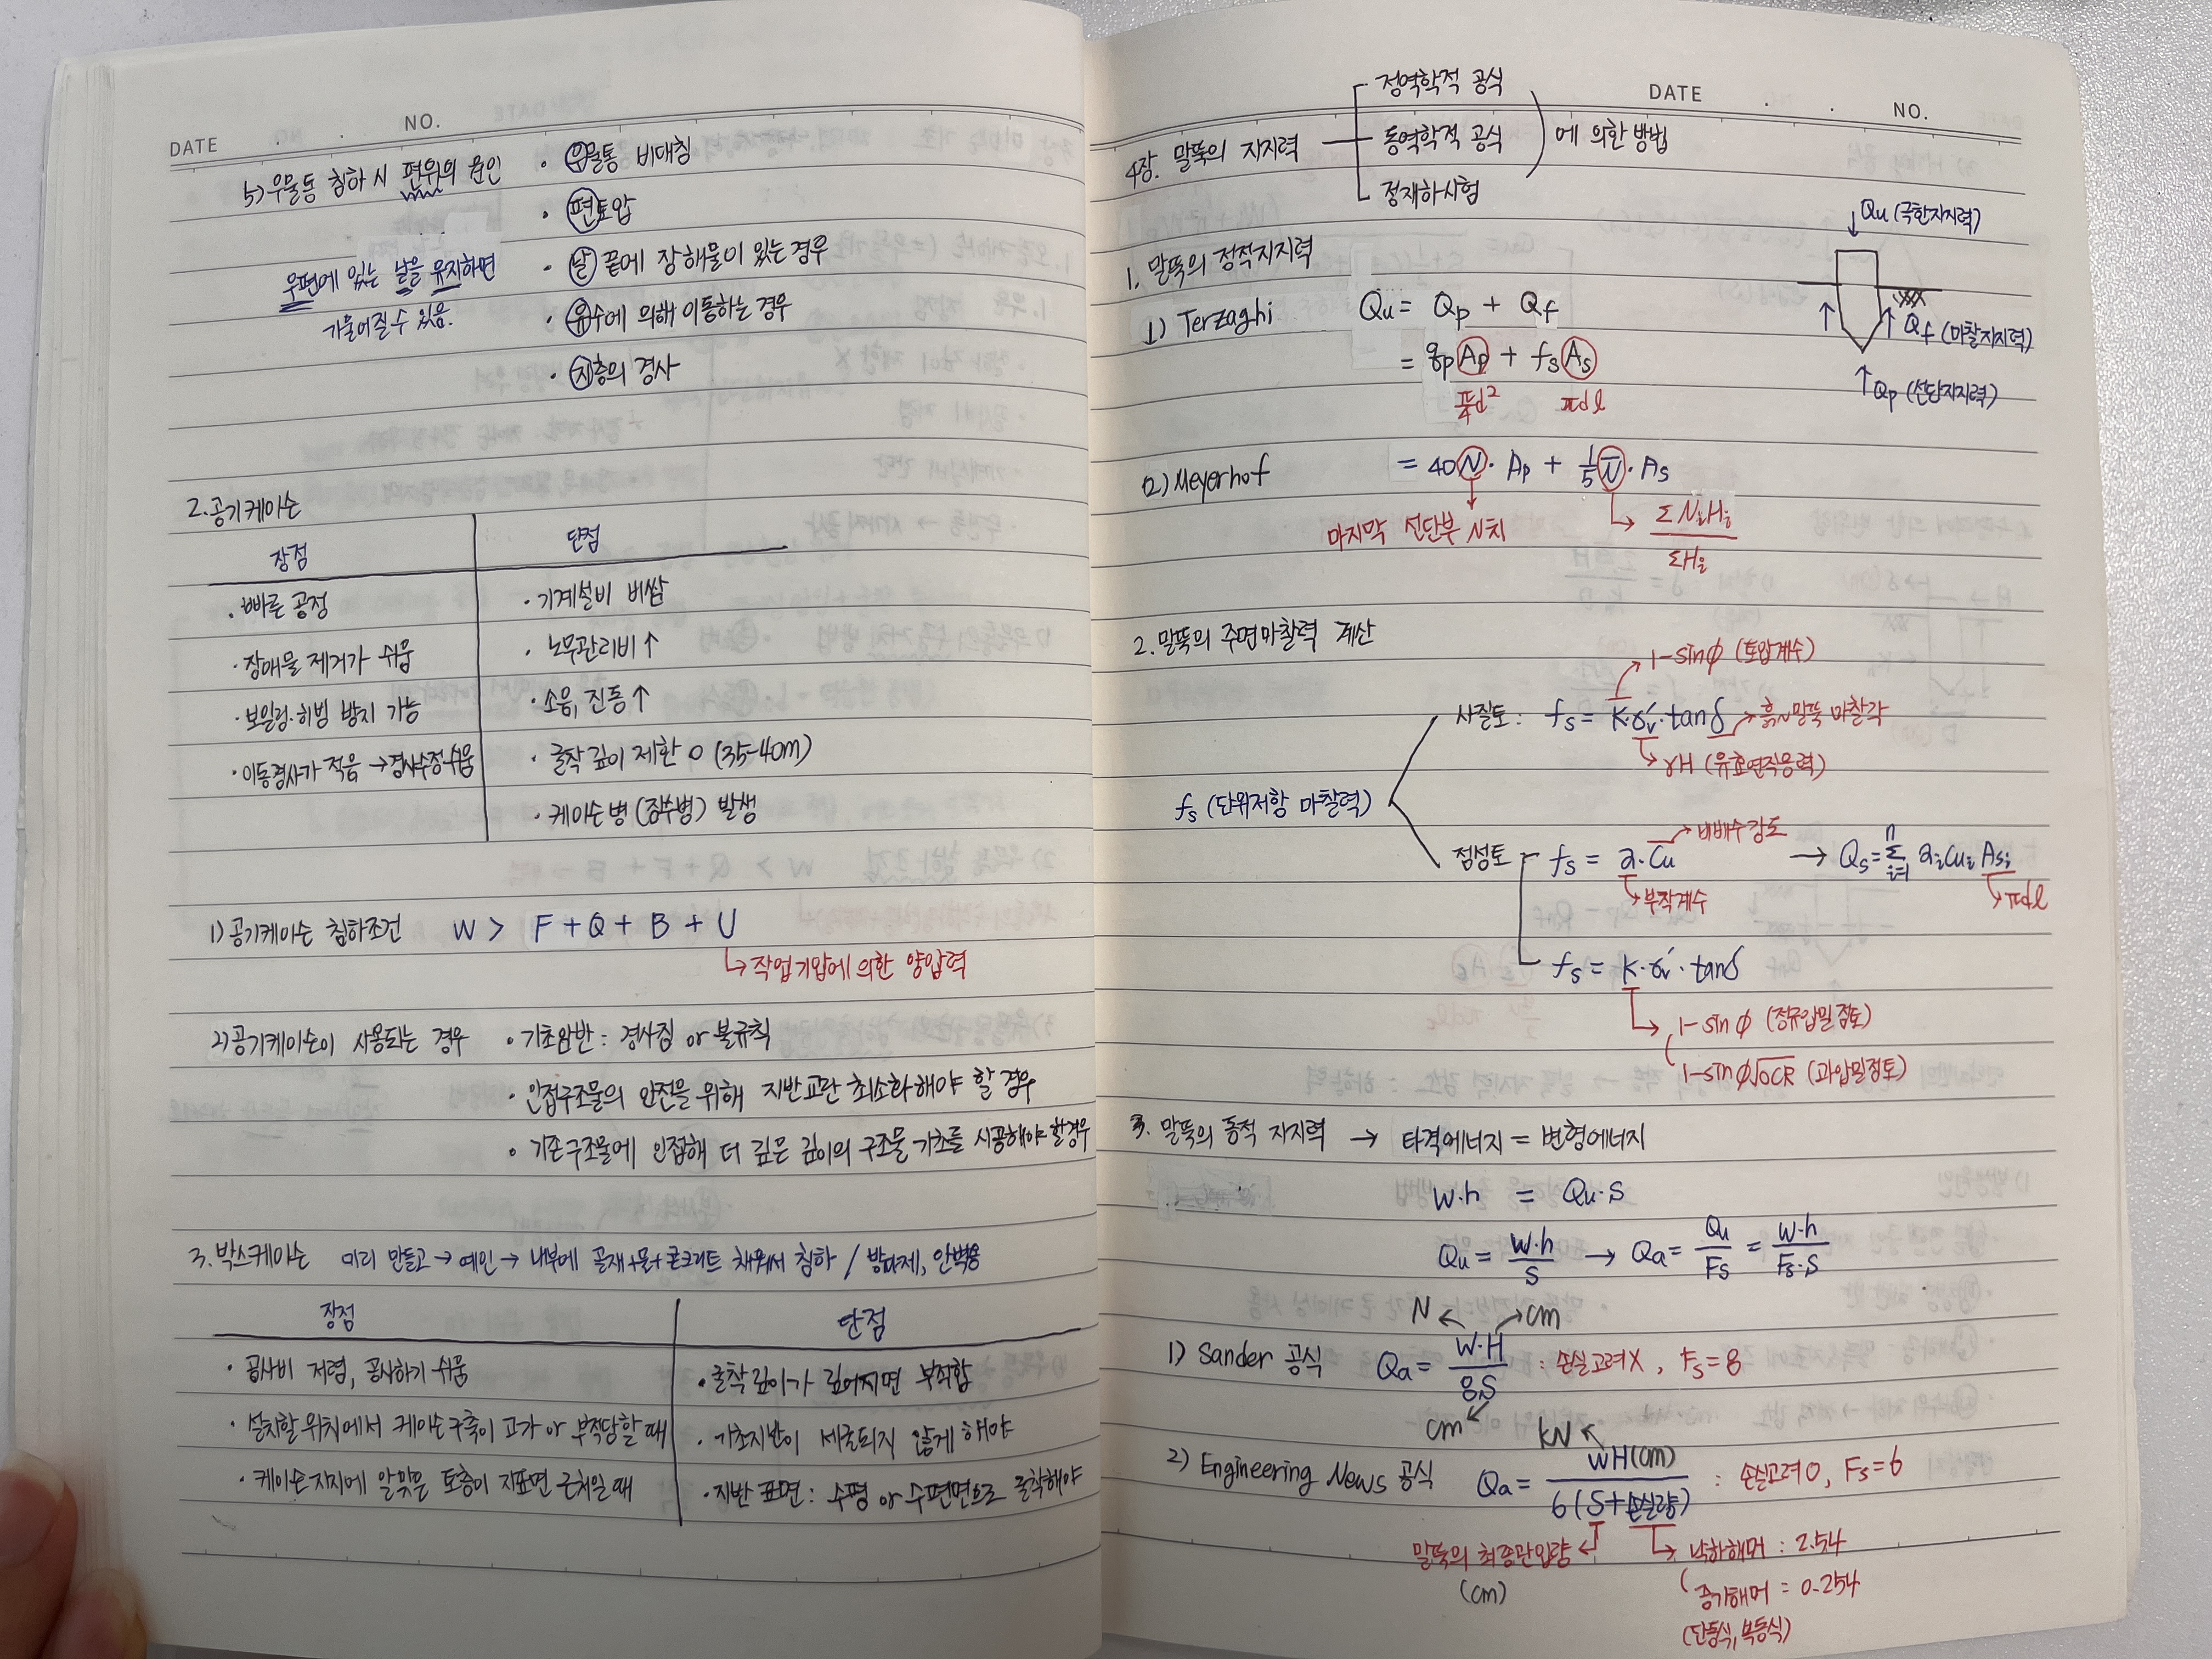 DATE . . NO.
5) 우물통 침하 시 편위의 원인 · 우물통 비대칭
· 편토압
· 날 끝에 장해물이 있는 경우
우편에 있는 날을 유지하면
기울어질 수 있음.
· 유수에 의해 이동하는 경우
· 지층의 경사
2. 공기케이슨
장점 단점
· 빠른 공정 · 기계설비 비쌈
· 장애물 제거가 쉬움 · 노무관리비 ↑
· 보일링·히빙 방지 가능 · 소음, 진동 ↑
· 이동경사가 적음 → 경사수정 쉬움 · 굴착 깊이 제한 O (35-40m)
· 케이슨 병 (잠수병) 발생
1) 공기케이슨 침하조건 W > F + Q + B + U
↳ 작업기압에 의한 양압력
2) 공기케이슨이 사용되는 경우 · 기초암반 : 경사짐 or 불규칙
· 인접구조물의 안전을 위해 지반교란 최소화해야 할 경우
· 기존구조물에 인접해 더 깊은 깊이의 구조물 기초를 시공해야 할 경우
3. 박스케이슨 미리 만들고 → 예인 → 내부에 골재+물+콘크리트 채워서 침하 / 방파제, 안벽용
장점 단점
· 공사비 저렴, 공사하기 쉬움 · 굴착깊이가 깊어지면 부적합
· 설치할 위치에서 케이슨 구축이 고가 or 부적당할 때 · 기초지반이 세굴되지 않게 해야
· 케이슨 지지에 알맞은 토층이 지표면 근처일 때 · 지반 표면 : 수평 or 수평면으로 굴착해야
DATE . . NO.
4장. 말뚝의 지지력
정역학적 공식
동역학적 공식
정재하시험
에 의한 방법
1. 말뚝의 정적지지력
Qu (극한지지력)
Qf (마찰지지력)
Qp (선단지지력)
1) Terzaghi Qu = Qp + Qf
= qp Ap + fs As
π/4 d² πdl
2) Meyerhof = 40N · Ap + 1/5 N̄ · As
마지막 선단부 N치 ΣNiHi / ΣHi
2. 말뚝의 주면마찰력 계산
1-sinφ (토압계수)
사질토 : fs = K·σv'·tanδ → 흙~말뚝 마찰각
↳ γH (유효연직응력)
fs (단위저항 마찰력)
→ 비배수강도
점성토 fs = a·Cu → Qs = Σ(i=1, n) ai Cui Asi
부착계수 πdl
fs = K·σv'·tanδ
1-sinφ (정규압밀점토)
1-sinφ√OCR (과압밀점토)
3. 말뚝의 동적 지지력 → 타격에너지 = 변형에너지
W·h = Qu·S
Qu = W·h / S → Qa = Qu / Fs = W·h / Fs·S
N ← → cm
1) Sander 공식 Qa = W·H / 8S : 손실고려X, Fs=8
cm ↙
kN
2) Engineering News 공식 Qa = WH(cm) / 6(S+손실량) : 손실고려 O, Fs=6
말뚝의 최종관입량 ← ↳ 낙하해머 : 2.54
(cm) 증기해머 = 0.254
(단동식, 복동식)